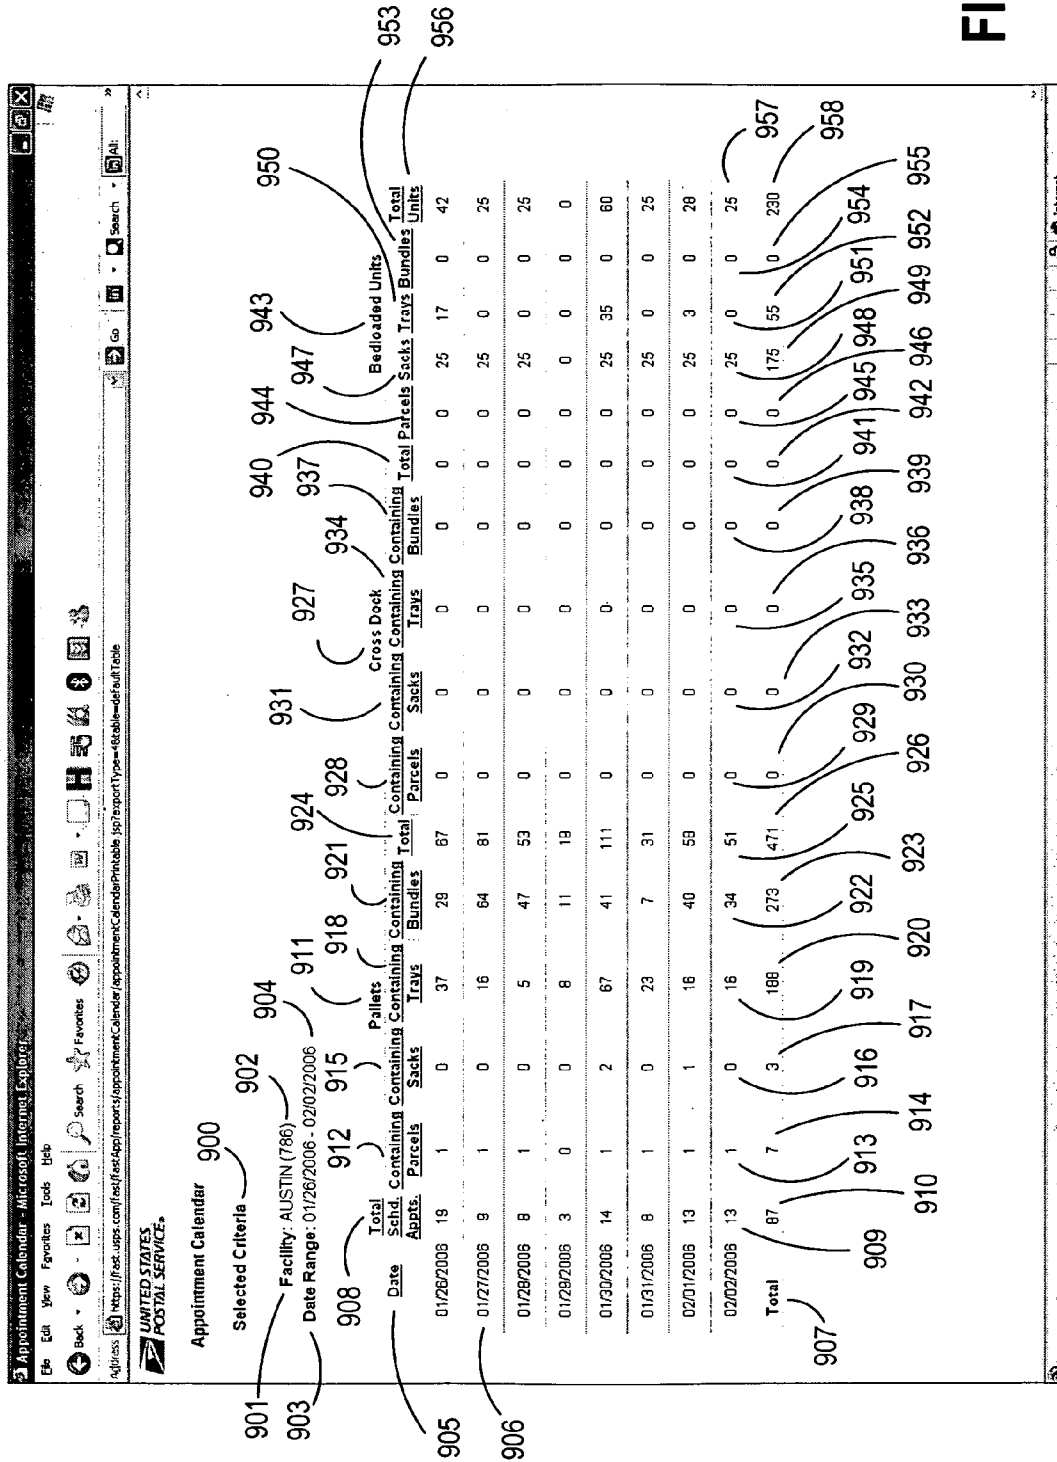 Appointment Calendar - Microsoft Internet Explorer
File Edit View Favorites Tools Help
Back Search Favorites
Address https://fast.usps.com/fast/fastApp/reports/appointmentCalendar/appointmentCalendarPrintable.jsp?exportType=4&table=defaultTable Go Search All:
UNITED STATES
POSTAL SERVICE
Appointment Calendar
Selected Criteria 900
901 Facility: AUSTIN (786) 902
903 Date Range: 01/26/2006 - 02/02/2006 904
908 912 915 911 918 921 924 928 931 927 934 937 940 944 947 943 950 953 956
Pallets Cross Dock Bedloaded Units
905 Date Total Schd. Appts. Containing Parcels Containing Sacks Containing Trays Containing Bundles Total Containing Parcels Containing Sacks Containing Trays Containing Bundles Total Parcels Sacks Trays Bundles Total Units
01/26/2006 19 1 0 37 29 67 0 0 0 0 0 0 25 17 0 42
906 01/27/2006 9 1 0 16 64 81 0 0 0 0 0 0 25 0 0 25
01/28/2006 8 1 0 5 47 53 0 0 0 0 0 0 25 0 0 25
01/29/2006 3 0 0 8 11 19 0 0 0 0 0 0 0 0 0 0
01/30/2006 14 1 2 67 41 111 0 0 0 0 0 0 25 35 0 60
01/31/2006 8 1 0 23 7 31 0 0 0 0 0 0 25 0 0 25
02/01/2006 13 1 1 16 40 58 0 0 0 0 0 0 25 3 0 28
02/02/2006 13 1 0 16 34 51 0 0 0 0 0 0 25 0 0 25 957
907 Total 87 7 3 188 273 471 0 0 0 0 0 0 175 55 0 230 958
909 910 913 914 916 917 919 920 922 923 925 926 929 930 932 933 935 936 938 939 941 942 945 946 948 949 951 952 954 955
Internet
FI